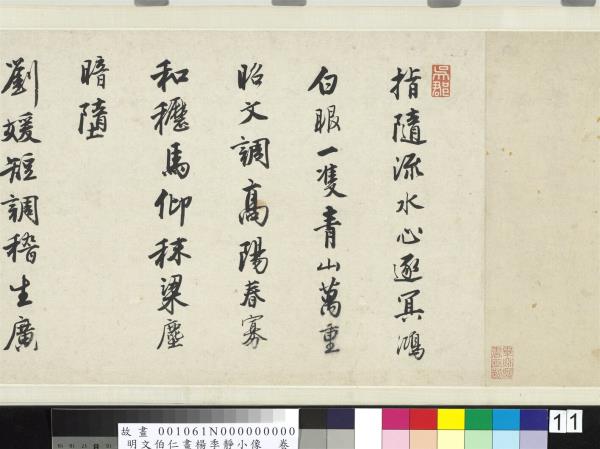 指隨流水心逐冥鴻
白眼一隻青山萬重
昭文調高陽春寡
和櫪馬仰秣梁塵
暗墮
劉媛短調稽生廣
吳郡
11
故畫 001061N000000000
明文伯仁畫楊季靜小像 卷